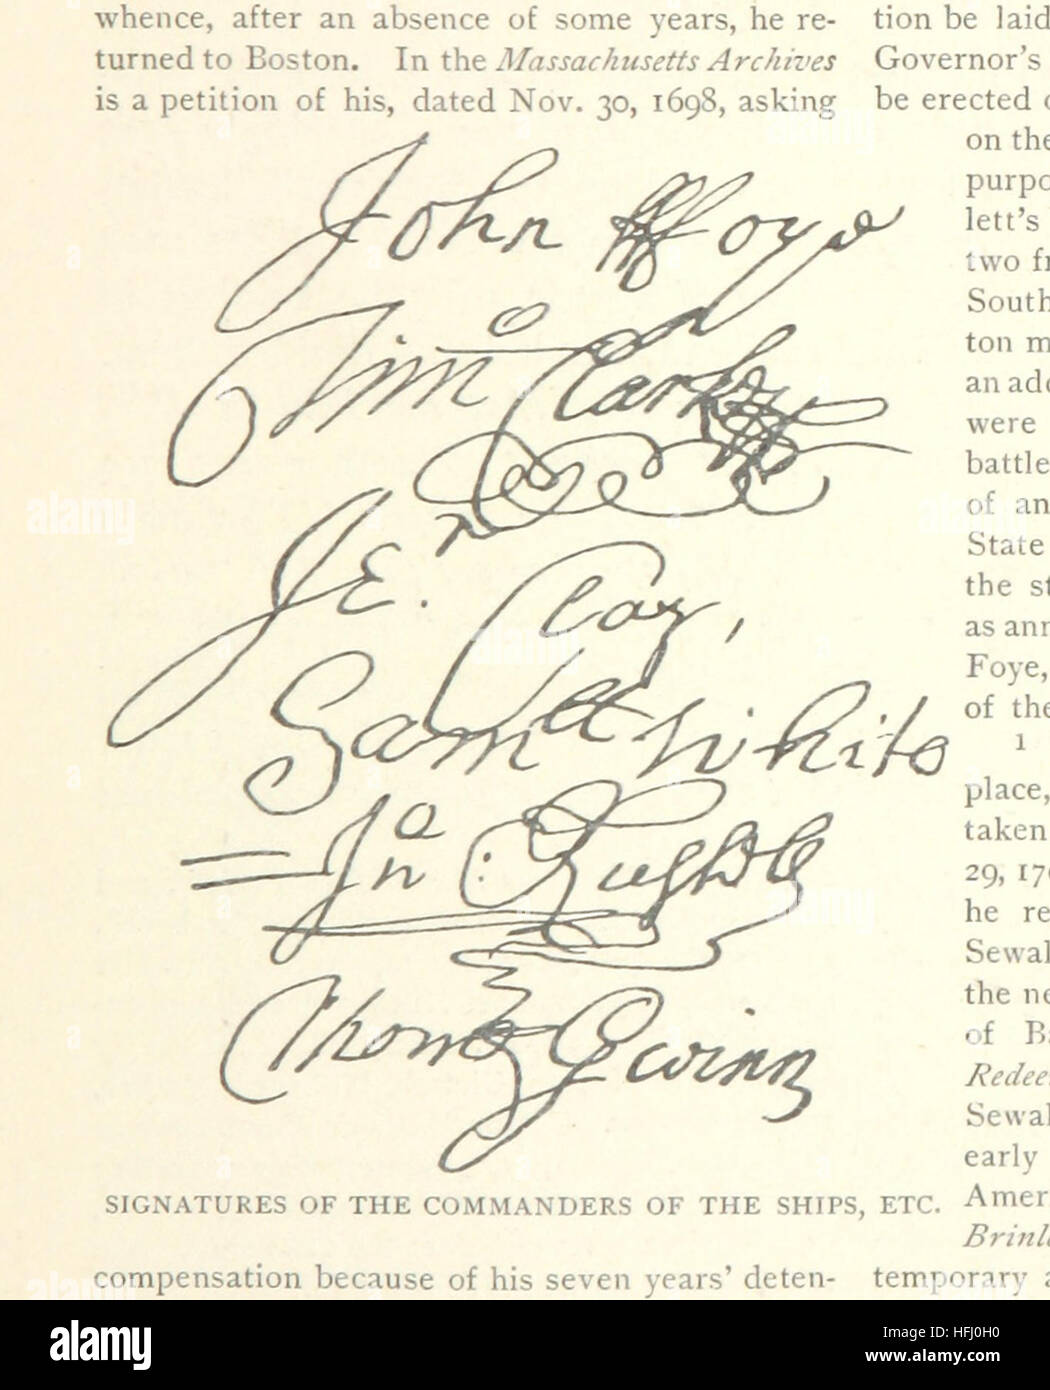 whence, after an absence of some years, he re-
turned to Boston. In the Massachusetts Archives
is a petition of his, dated Nov. 30, 1698, asking
John ffoye
Timo Clarke
Jer. Clay,
Samll White
Jno
Thomas Gwinn
SIGNATURES OF THE COMMANDERS OF THE SHIPS, ETC.
compensation because of his seven years' deten-
tion be laid
Governor's
be erected
on the
purpo
lett's
two fr
South
ton m
an add
were
battle
of an
State
the st
as ann
Foye,
of the
1
place,
taken
29, 170
he re
Sewal
the ne
of B
Redee
Sewal
early
Amer
Brinl
temporary a
alamy
Image ID: HFJ0H0
www.alamy.com